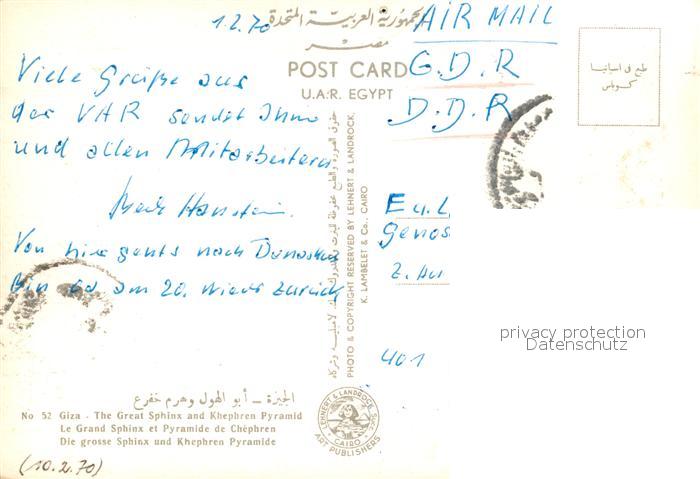 1.2.70
الجمهورية العربية المتحدة
مصر
POST CARD
U.A.R. EGYPT
AIR MAIL
G.D.R
D.D.R
طبع في اسبانيا
Viele Grüße aus
der VAR sendet Ihnen
und allen Mitarbeitern
Hanstein.
Von hier gehts nach Damaskus
Bin ca am 20. wieder zurück
PHOTO & COPYRIGHT RESERVED BY LEHNERT & LANDROCK,
K. LAMBELET & Co., CAIRO
E u. L
Genos
z. Hd
401
privacy protection
Datenschutz
الجيزة – أبو الهول وهرم خفرع
No 52 Giza - The Great Sphinx and Khephren Pyramid
Le Grand Sphinx et Pyramide de Chéphren
Die grosse Sphinx und Khephren Pyramide
LEHNERT & LANDROCK, Succ.
CAIRO
ART PUBLISHERS
(10.2.70)